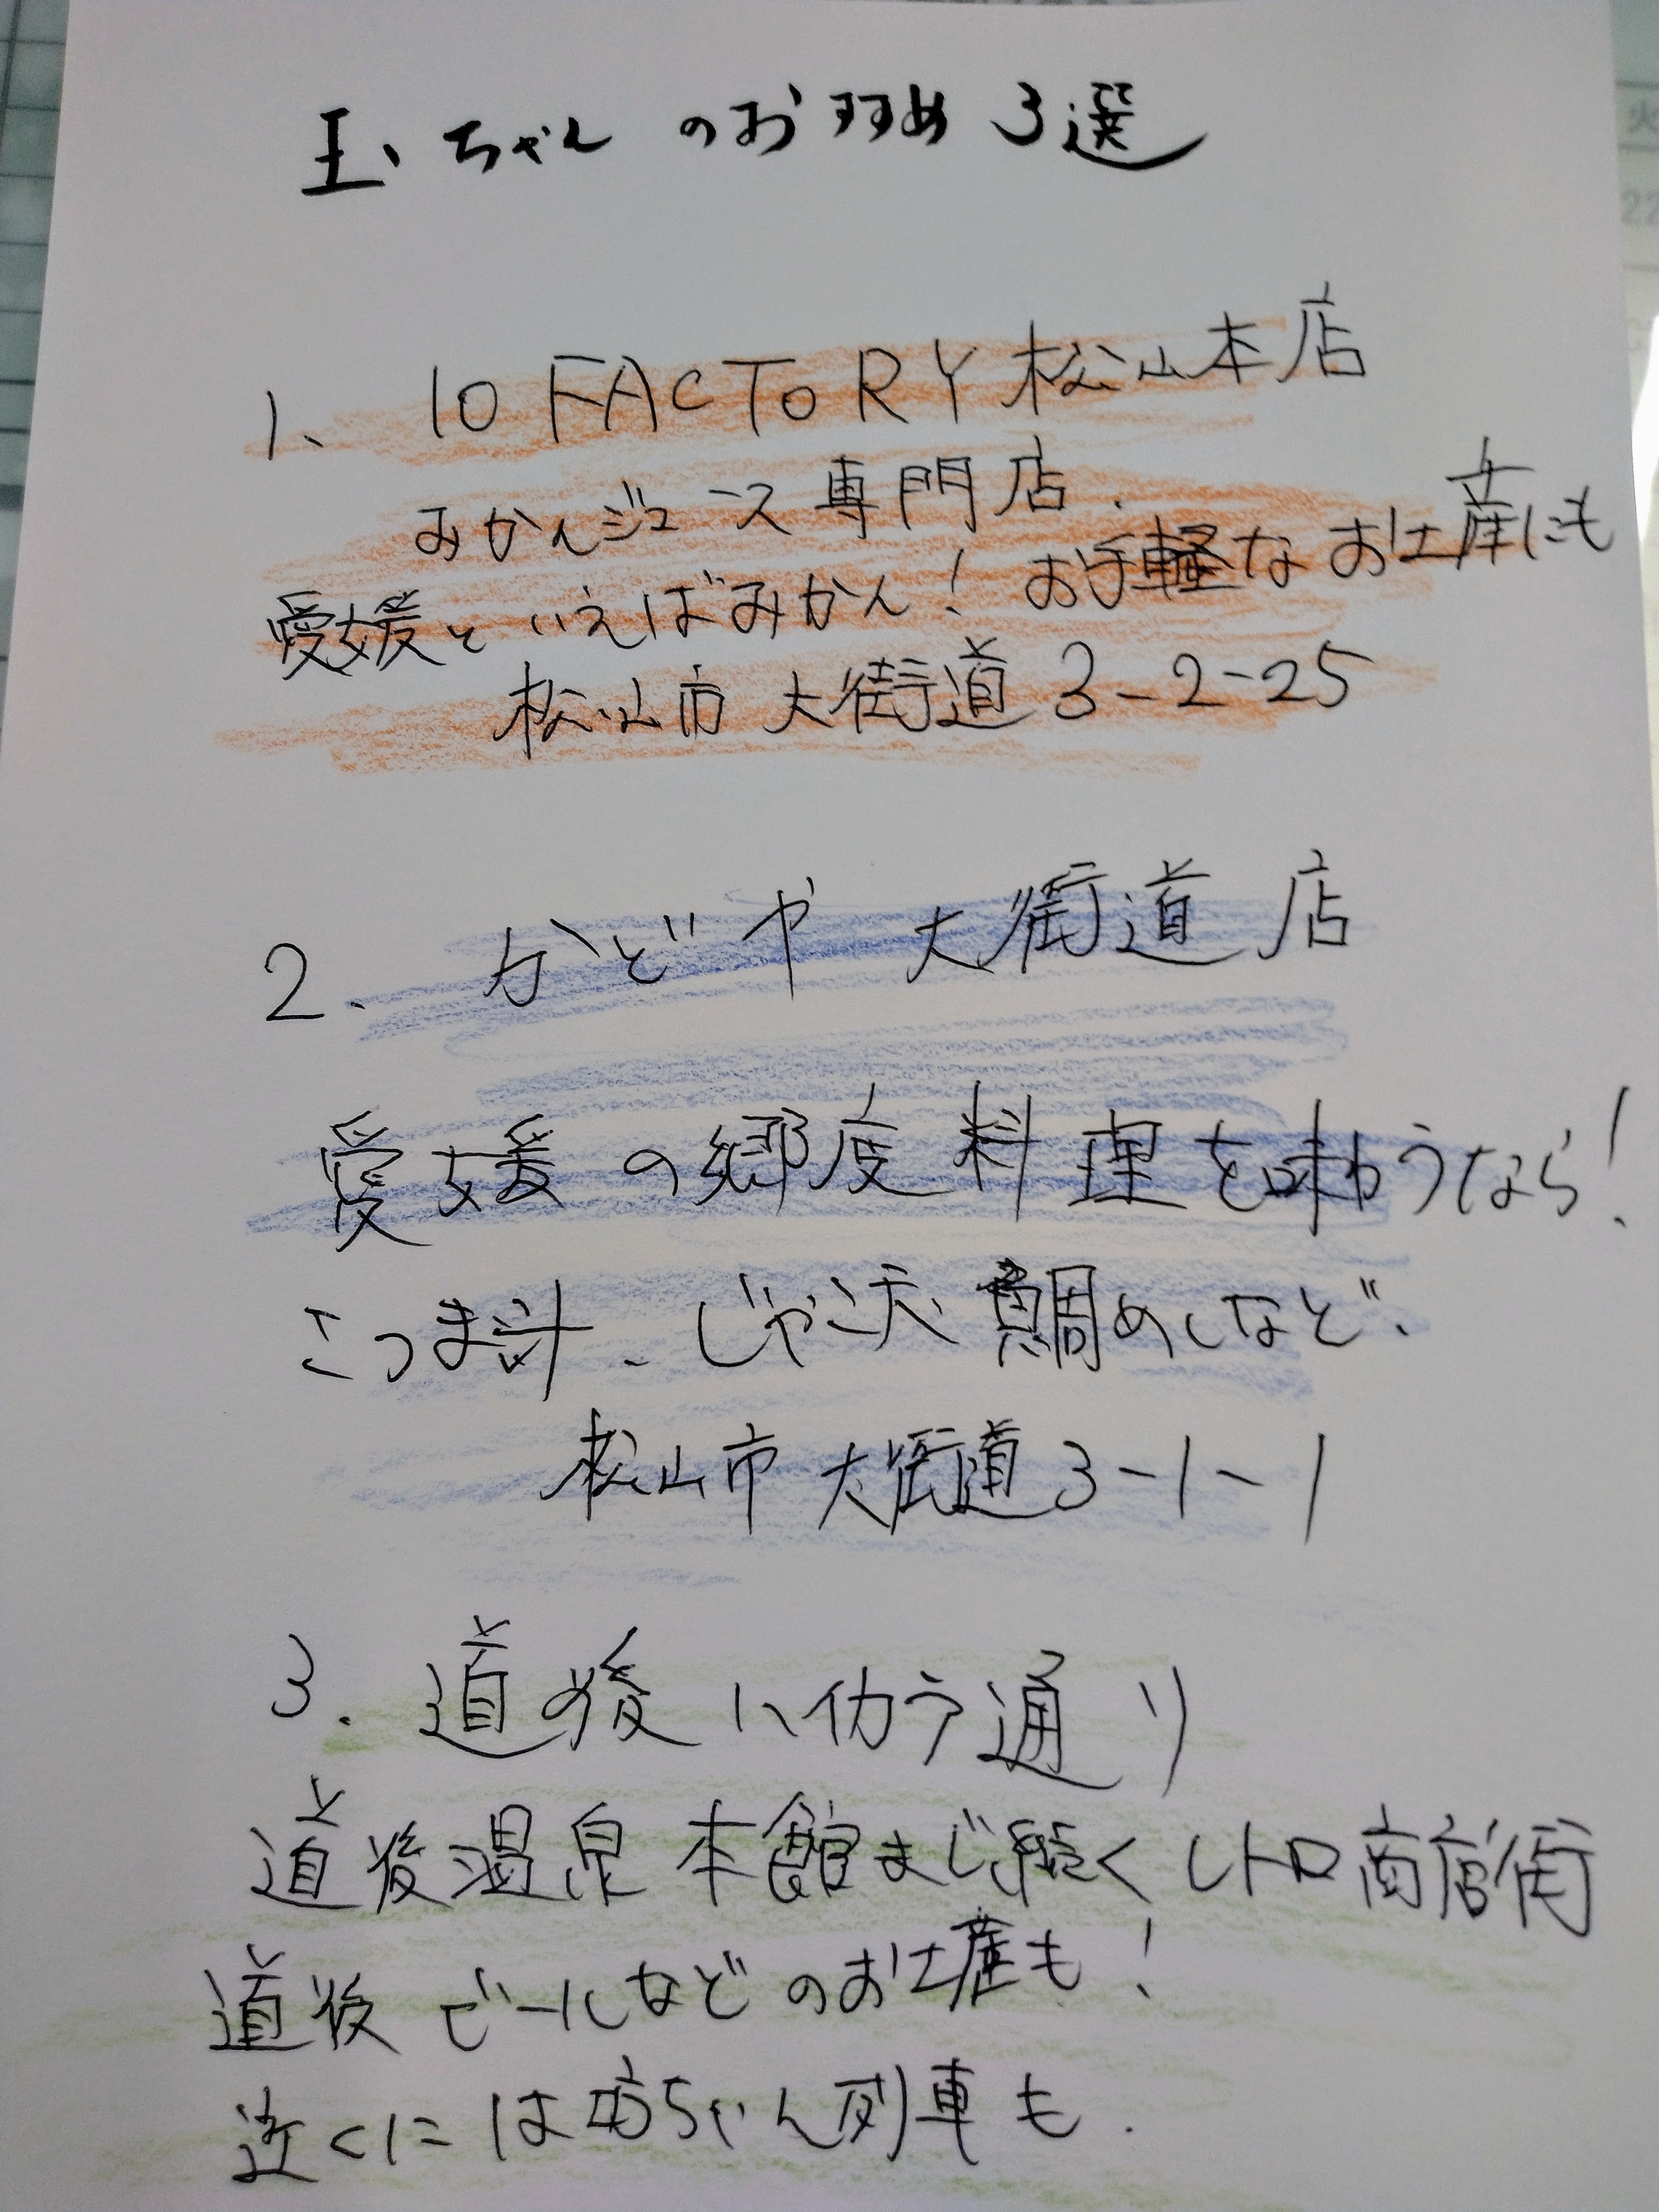 玉ちゃんのおすすめ3選
1、10 FACTORY 松山本店
みかんジュース専門店.
愛媛といえばみかん! お手軽なお土産にも
松山市大街道3-2-25
2、かどや 大街道店
愛媛の郷度料理を味わうなら!
こつま汁、じゃこ天 鯛めしなど、
松山市大街道3-1-1
3. 道後ハイカラ通り
道後温泉本館まじ続くレトロ商店街
道後ビールなどのお土産も!
近くには坊ちゃん列車も.
火
22